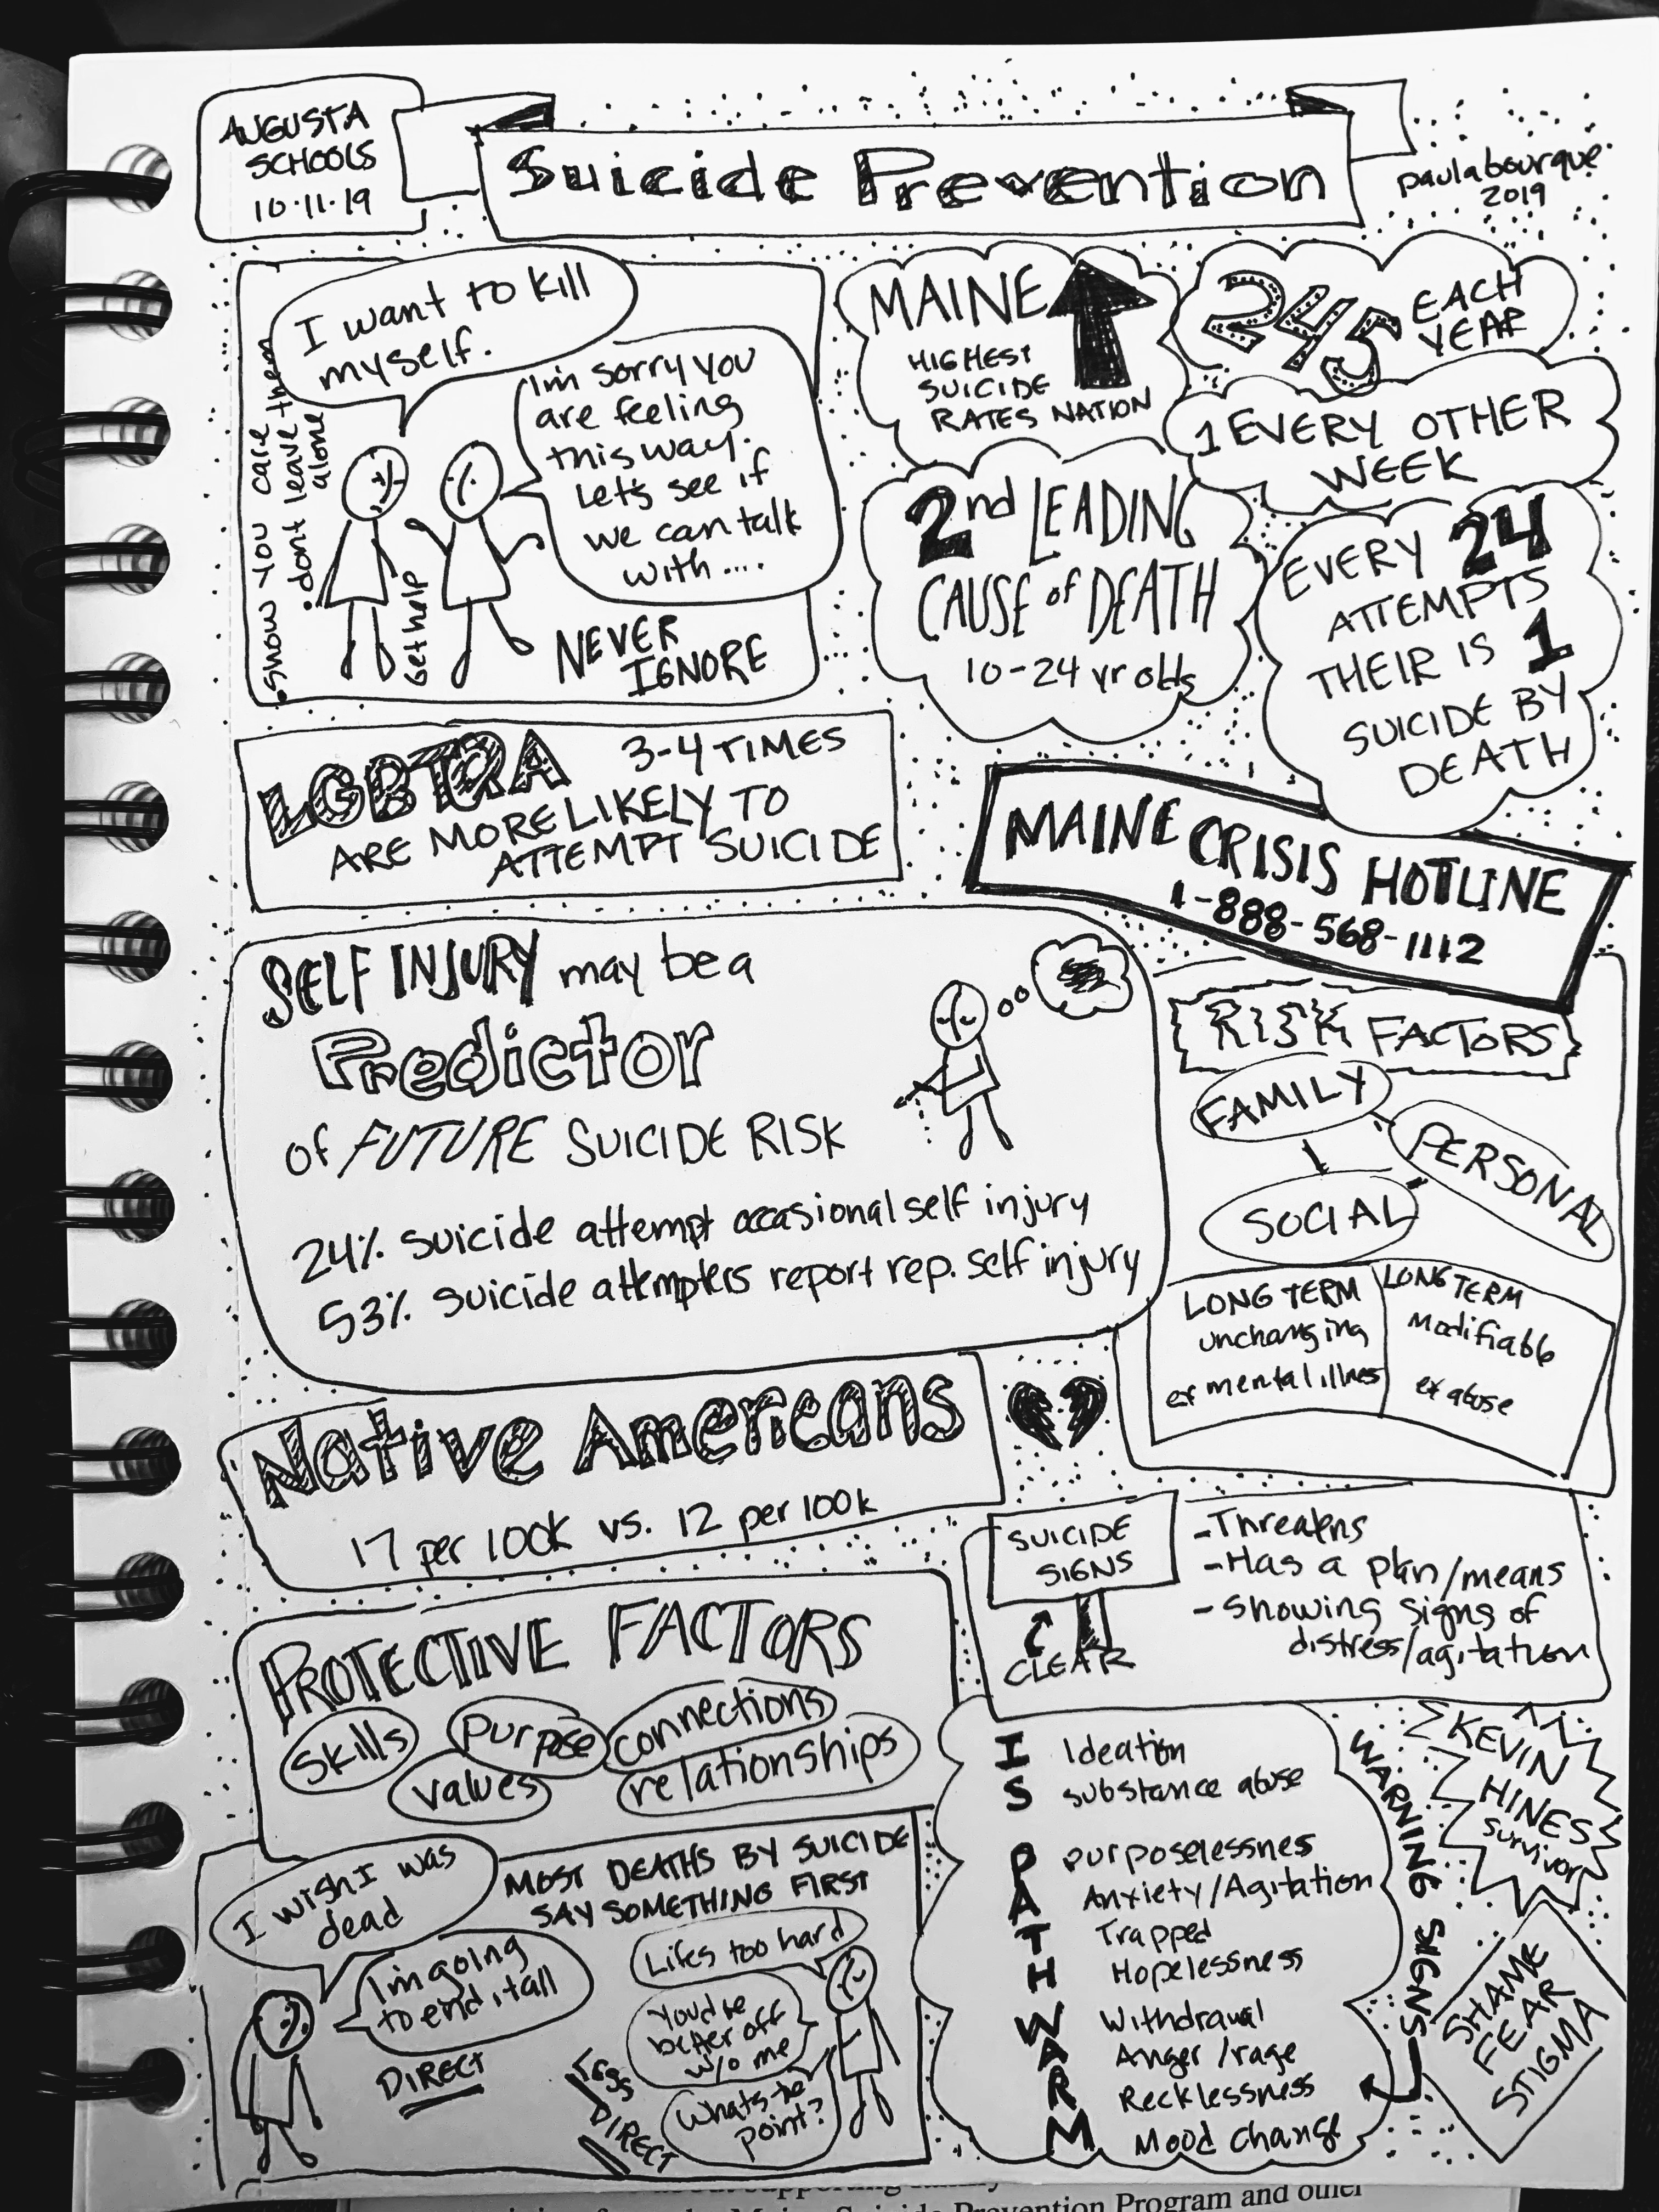 AUGUSTA
SCHOOLS
10.11.19
Suicide Prevention
paulabourque
2019
I want to kill
myself.
I'm sorry you
are feeling
this way.
Let's see if
we can talk
with....
• Show you care
• dont leave them
alone
Get help
NEVER
IGNORE
MAINE
HIGHEST
SUICIDE
RATES NATION
245 EACH
YEAR
1 EVERY OTHER
WEEK
2nd LEADING
CAUSE of DEATH
10-24 yr olds
EVERY 24
ATTEMPTS
THEIR IS 1
SUICIDE BY
DEATH
LGBTQA 3-4 TIMES
ARE MORE LIKELY TO
ATTEMPT SUICIDE
MAINE CRISIS HOTLINE
1-888-568-1112
SELF INJURY may be a
Predictor
of FUTURE SUICIDE RISK
24% suicide attempt occasional self injury
53% suicide attempters report rep. self injury
RISK FACTORS
FAMILY
PERSONAL
SOCIAL
LONG TERM
unchanging
ex mental illness
LONG TERM
Modifiable
ex abuse
Native Americans
17 per 100k vs. 12 per 100k
SUICIDE
SIGNS
CLEAR
- Threatens
- Has a plan/means
- Showing signs of
distress/agitation
PROTECTIVE FACTORS
Skills
purpose
connections
values
relationships
I Ideation
S substance abuse
P purposelessnes
A Anxiety/Agitation
T Trapped
H Hopelessness
W Withdrawal
A Anger/rage
R Recklessness
M Mood change
WARNING SIGNS
KEVIN
HINES
Survivor
SHAME
FEAR
STIGMA
MOST DEATHS BY SUICIDE
SAY SOMETHING FIRST
I wish I was
dead
I'm going
to end it all
DIRECT
Lifes too hard
Youd be
better off
w/o me
Whats the
point?
less
DIRECT
Prevention Program and other